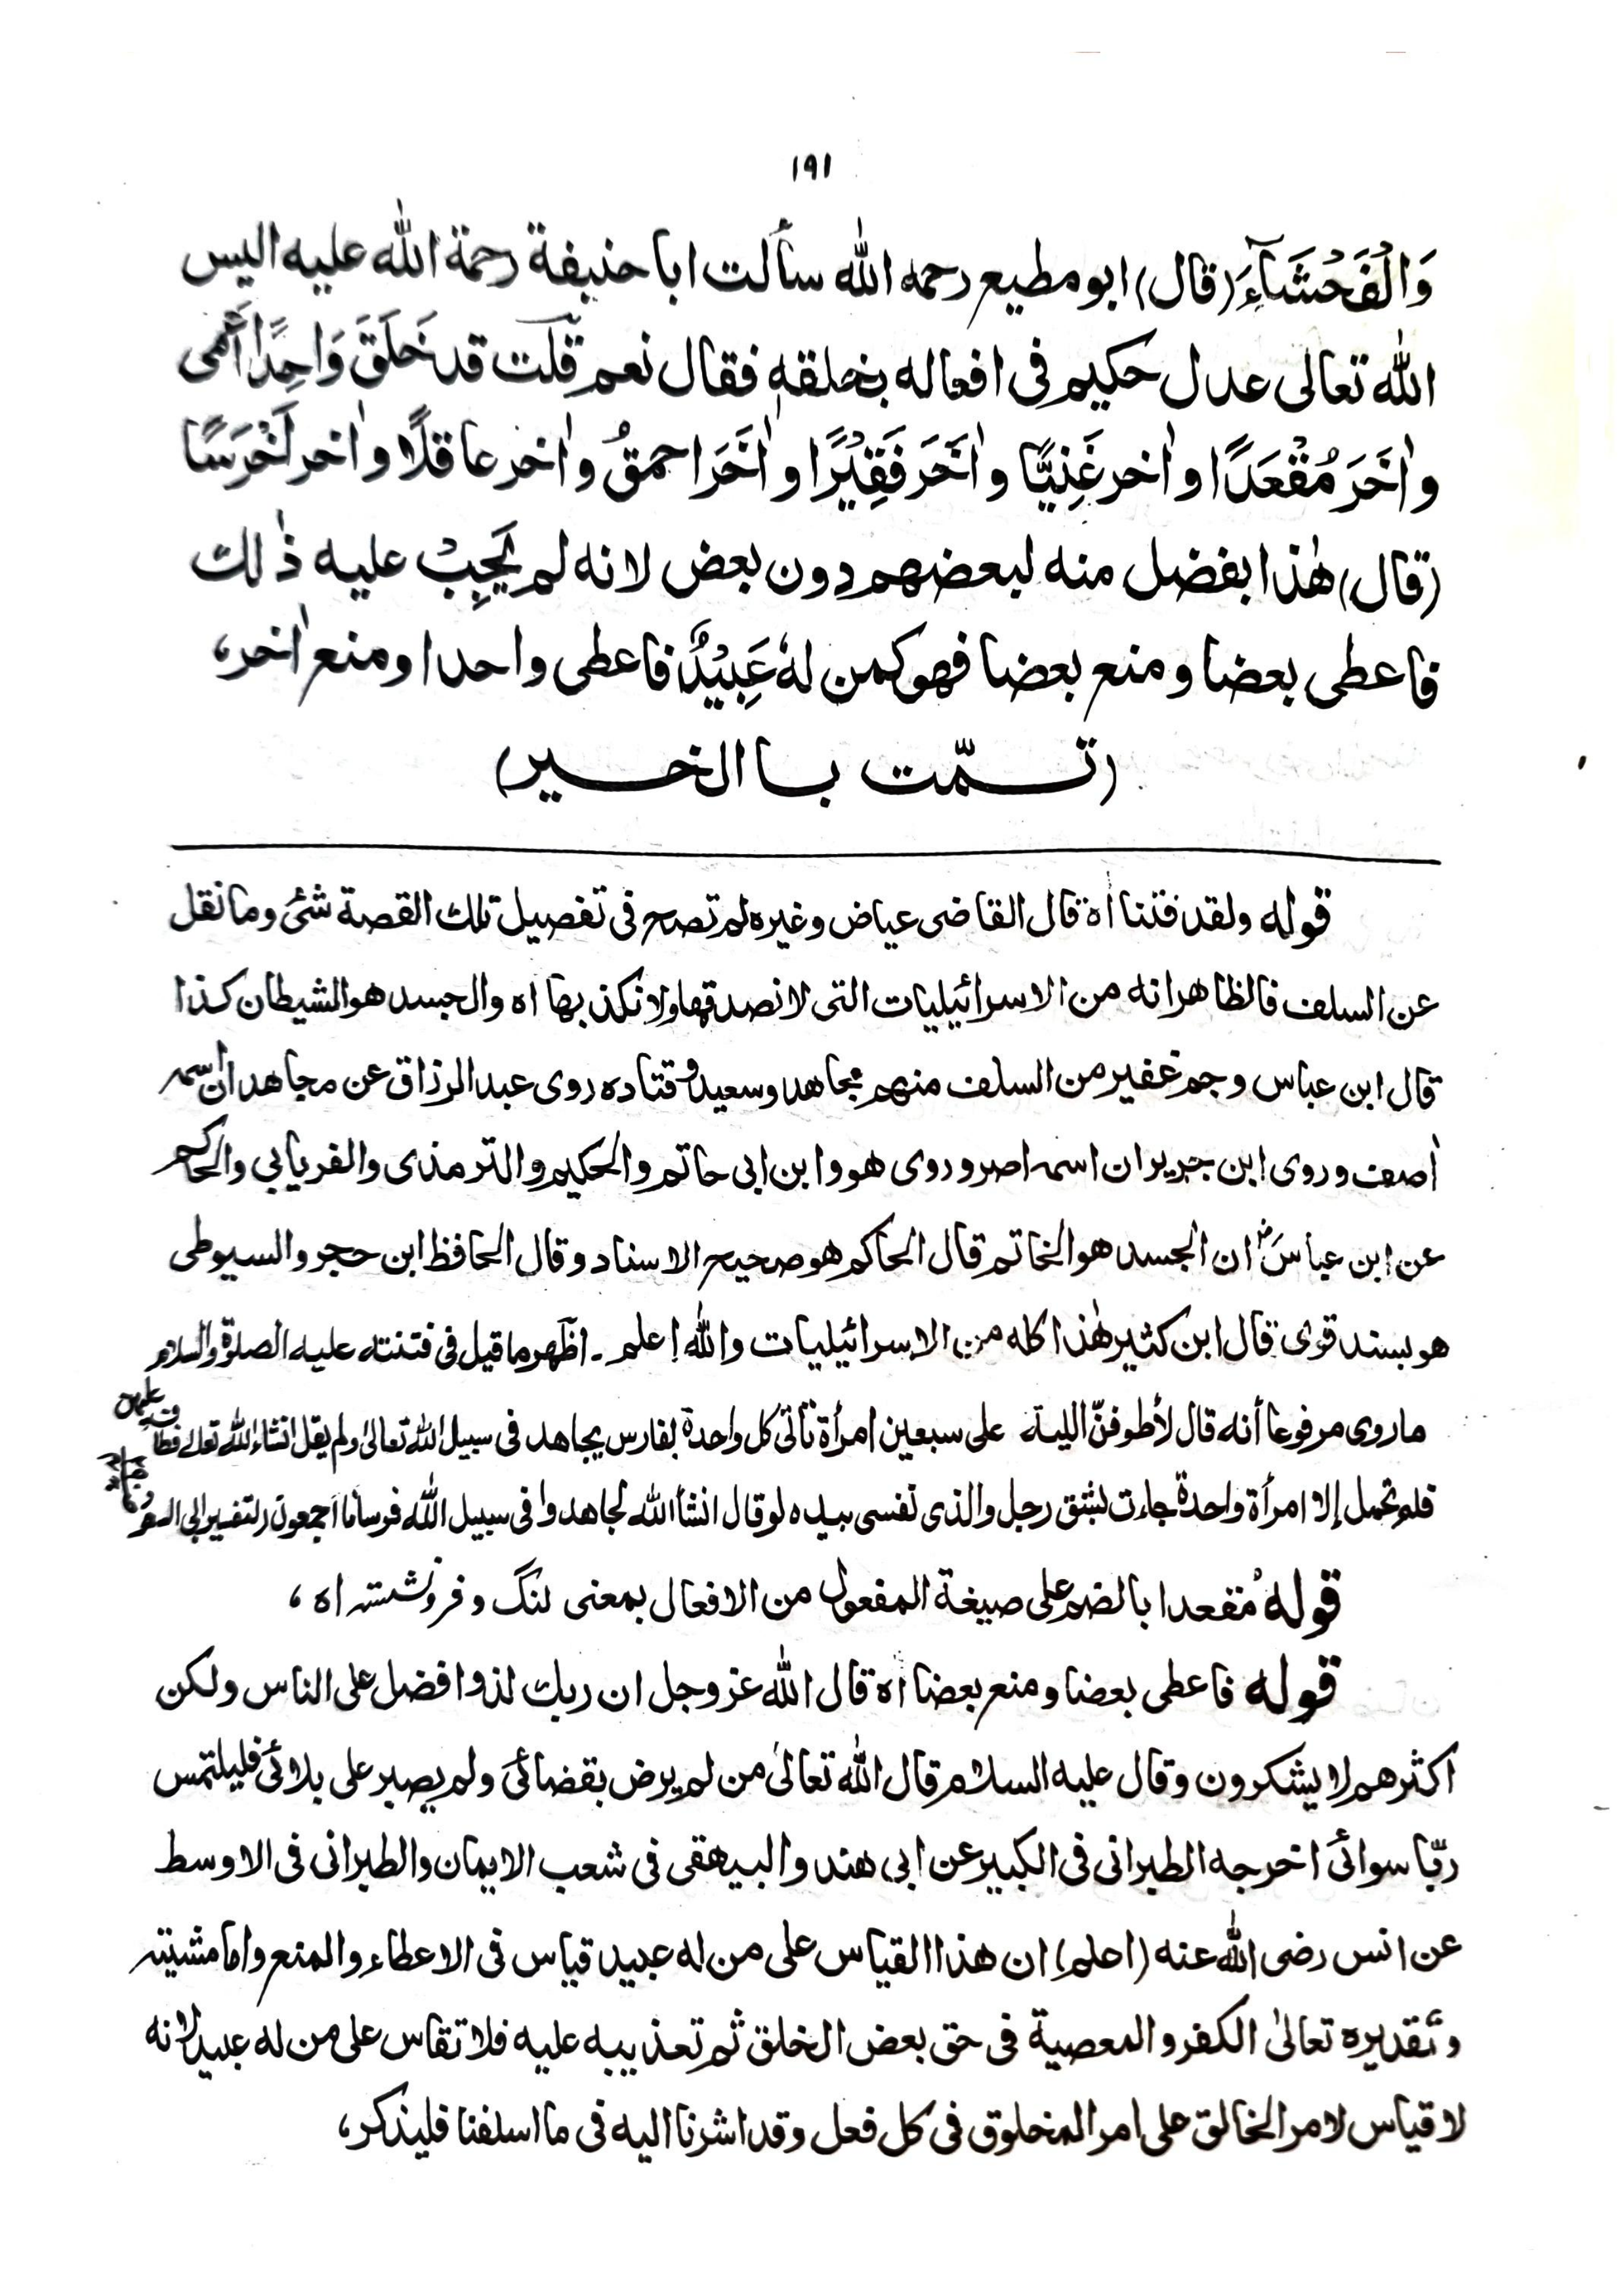 ١٩١
وَالْفَحْشَآءَ (قال) ابو مطيع رحمه الله سألت ابا حنيفة رحمة الله عليه اليس
الله تعالى عدل حكيم فى افعاله بخلقه فقال نعم قلت قد خَلَقَ وَاحِدًا أَعْمى
واٰخَرَ مُقْعَدًا واٰخر غَنِيًّا واٰخَرَ فَقِيْرًا واٰخَرَ احمقُ واٰخر عاقلًا واٰخر اَخْرَسًا
(قال) هٰذا بفضل منه لبعضهم دون بعض لانه لم يَجِبْ عليه ذٰلك
فاعطى بعضا ومنع بعضا فهو كمن لهٗ عَبِيْدٌ فاعطى واحدا ومنع اٰخر،
(تمّت با الخير)
قوله ولقد فتنا اه قال القاضى عياض وغيره لم تصح فى تفصيل تلك القصة شئ وما نقل
عن السلف فالظاهر انه من الاسرائيليات التى لا نصدقها ولا نكذبها اه والجسد هو الشيطان كذا
قال ابن عباس وجم غفير من السلف منهم مجاهد وسعيد وقتاده روى عبد الرزاق عن مجاهد ان اسمه
اٰصف وروى ابن جرير ان اسمه اصر وروى هو وابن ابى حاتم والحكيم والترمذى والفريابي والحاكم
عن ابن عباسؓ ان الجسد هو الخاتم قال الحاكم هو صحيح الاسناد وقال الحافظ ابن حجر والسيوطى
هو بسند قوى قال ابن كثير هٰذا كله من الاسرائيليات والله اعلم ـ اظهر ما قيل فى فتنته عليه الصلوة والسلام
ما روى مرفوعا أنه قال لأطوفنّ الليلة على سبعين امرأة تأتى كل واحدة بفارس يجاهد فى سبيل الله تعالى ولم يقل انشاء الله تعالى فطاف عليهن
فلم تحمل إلا امرأة واحدة جاءت بشق رجل والذى نفسى بيده لو قال انشأ الله لجاهدوا فى سبيل الله فرسانا اجمعون (تفسير ابى السعود
قوله مُقعدا بالضم على صيغة المفعول من الافعال بمعنى لنگ و فرونشسته اه،
قوله فاعطى بعضا ومنع بعضا اه قال الله عز وجل ان ربك لذوا فضل على الناس ولكن
اكثرهم لا يشكرون وقال عليه السلام قال الله تعالىٰ من لم يرض بقضائى ولم يصبر على بلائى فليلتمس
ربّا سوائى اخرجه الطبرانى فى الكبير عن ابى هند والبيهقى فى شعب الايمان والطبرانى فى الاوسط
عن انس رضى الله عنه (احلم) ان هذا القياس على من له عبيد قياس فى الاعطاء والمنع واما مشيته
وتقديره تعالىٰ الكفر والمعصية فى حق بعض الخلق ثم تعذيبه عليه فلا تقاس على من له عبيد لانه
لا قياس لامر الخالق على امر المخلوق فى كل فعل وقد اشرنا اليه فى ما اسلفنا فليذكر،